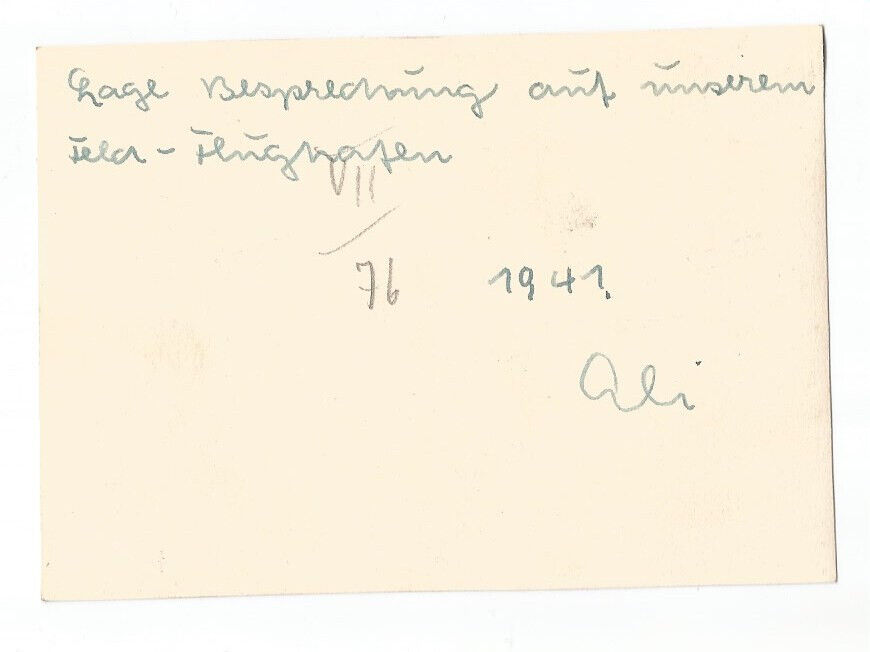 Lage Besprechung auf unserem
Feld - Flughafen
VII
76 1941.
Ali